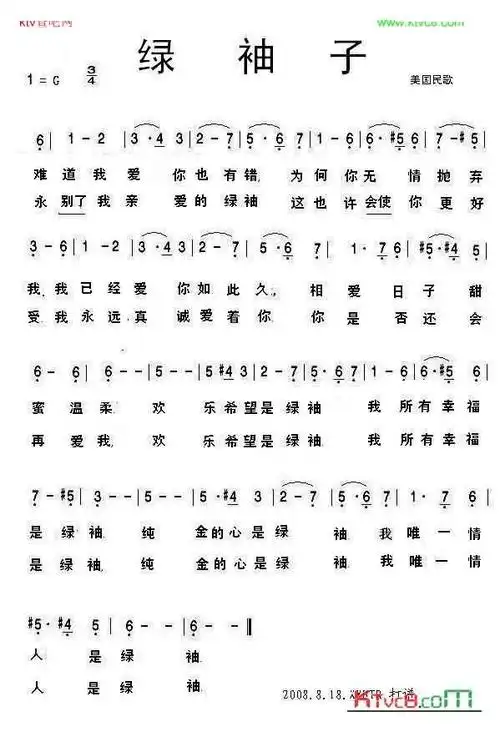 KTV宣吧网
www.ktvc8.com
绿 袖 子
1 = G 3/4
美国民歌
6 | 1 - 2 | 3 · 4 3 | 2 - 7 | 5 · 6 7 | 1 - 6 | 6 · #5 6 | 7 - #5 |
难 道 我 爱 你 也 有 错, 为 何 你 无 情 抛 弃
永 别了 我 亲 爱 的 绿 袖 这 也 许 会使 你 更 好
3 - 6 | 1 - 2 | 3 · 4 3 | 2 - 7 | 5 · 6 7 | 1 · 7 6 | #5 · #4 #5 |
我, 我 已 经 爱 你 如 此 久, 相 爱 日 子 甜
受, 我 永 远 真 诚 爱 着 你 你 是 否 还 会
6 - 6 | 6 - - | 5 - - | 5 #4 3 | 2 - 7 | 5 · 6 7 | 1 - 6 | 6 · #5 6 |
蜜 温 柔. 欢 乐 希 望 是 绿 袖 我 所 有 幸 福
再 爱 我, 欢 乐 希 望 是 绿 袖 我 所 有 幸 福
7 - #5 | 3 - - | 5 - - | 5 · #4 3 | 2 - 7 | 5 · 6 7 | 1 · 7 6 |
是 绿 袖, 纯 金 的 心 是 绿 袖 我 唯 一 情
是 绿 袖, 纯 金 的 心 是 绿 袖 我 唯 一 情
#5 · #4 5 | 6 - - | 6 - - ‖
人 是 绿 袖.
人 是 绿 袖.
2008.8.18.
KTVC8.com